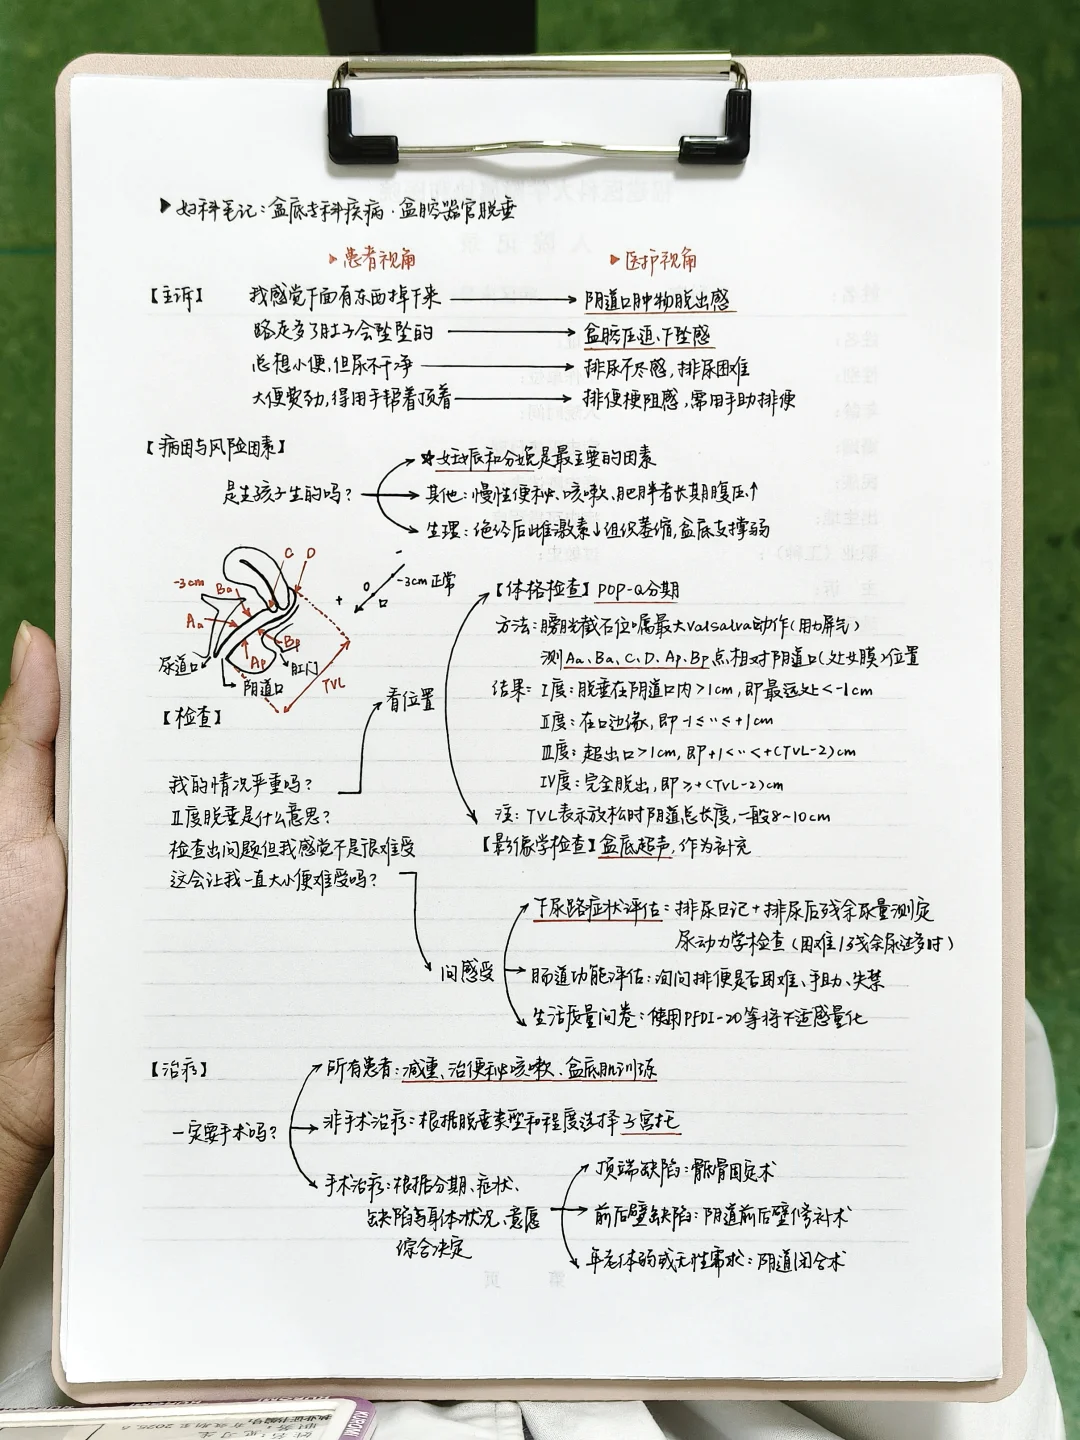 ▶ 妇科笔记：盆底专科疾病·盆腔器官脱垂
▸患者视角 ▸医护视角
【主诉】 我感觉下面有东西掉下来 → 阴道口肿物脱出感
路走多了肚子会坠坠的 → 盆腔压迫、下坠感
总想小便，但尿不干净 → 排尿不尽感，排尿困难
大便费劲，得用手帮着顶着 → 排便梗阻感，需用手助排便
【病因与风险因素】
☆妊娠和分娩是最主要的因素
是生孩子生的吗？ 其他：慢性便秘、咳嗽、肥胖者长期腹压↑
生理：绝经后雌激素↓组织萎缩，盆底支撑弱
C D
-3cm Ba
Aa
Bp
Ap
尿道口
阴道口
肛门
TVL
- 0 -3cm 正常
+ 口
【检查】
我的情况严重吗？
Ⅱ度脱垂是什么意思？
检查出问题但我感觉不是很难受
这会让我一直大小便难受吗？
看位置
【体格检查】POP-Q分期
方法：膀胱截石位嘱最大Valsalva动作(用力屏气)
测Aa、Ba、C、D、Ap、Bp点相对阴道口(处女膜)位置
结果：Ⅰ度：脱垂在阴道口内>1cm，即最远处<-1cm
Ⅱ度：在口边缘，即-1≤··≤+1cm
Ⅲ度：超出口>1cm，即+1<··<+(TVL-2)cm
Ⅳ度：完全脱出，即≥+(TVL-2)cm
注：TVL表示放松时阴道总长度，一般8~10cm
【影像学检查】盆底超声，作为补充
问感受
下尿路症状评估：排尿日记+排尿后残余尿量测定
尿动力学检查(困难/残余尿过多时)
肠道功能评估：询问排便是否困难、手助、失禁
生活质量问卷：使用PFDI-20等将不适感量化
【治疗】
所有患者：减重、治便秘咳嗽、盆底肌训练
一定要手术吗？ 非手术治疗：根据脱垂类型和程度选择子宫托
手术治疗：根据分期、症状、
缺陷与身体状况、意愿
综合决定
顶端缺陷：骶骨固定术
前后壁缺陷：阴道前后壁修补术
年老体弱或无性需求：阴道闭合术
第 页
KUROMI